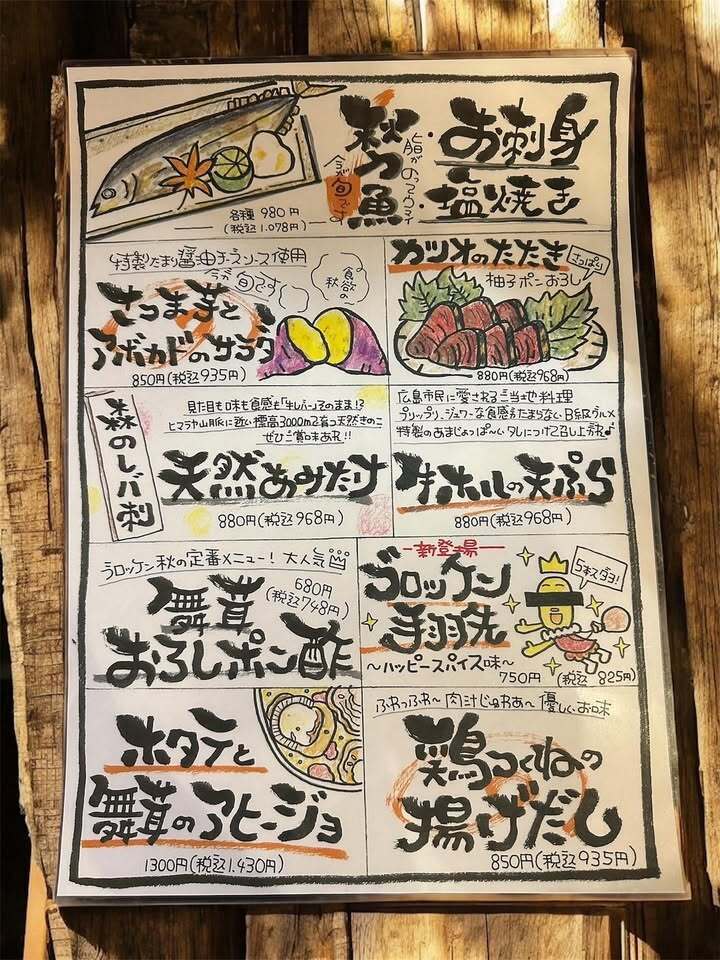 秋刀魚
脂がのってウマイ
今が旬です
・お刺身
・塩焼き
各種 980円
(税込1.078円)
特製たまり醤油チーズソース使用
今が旬です
食欲の
秋
さつま芋と
アボカドのサラダ
850円(税込935円)
カツオのたたき
さっぱり
柚子ポンおろし
880円(税込968円)
森のレバ刺
見た目も味も食感も「牛レバー」そのまま!?
ヒマラヤ山脈に近い標高3000mで育つ天然きのこ
ぜひご賞味あれ!!
天然あみたけ
880円(税込968円)
広島市民に愛されるご当地料理
プリップリ、ジュワーな食感がたまらないB級グルメ
特製のあまじょっぱ〜いタレにつけて召し上がれ♪
牛ホルの天ぷら
880円(税込968円)
ラロッケン秋の定番メニュー!大人気
舞茸
おろしポン酢
680円
(税込748円)
新登場
ラロッケン
手羽先
〜ハッピースパイス味〜
750円(税込825円)
ホタテと
舞茸のアヒージョ
1300円(税込1.430円)
ふわっふわ〜肉汁じゅわあ〜優しいお味
鶏つくねの
揚げだし
850円(税込935円)